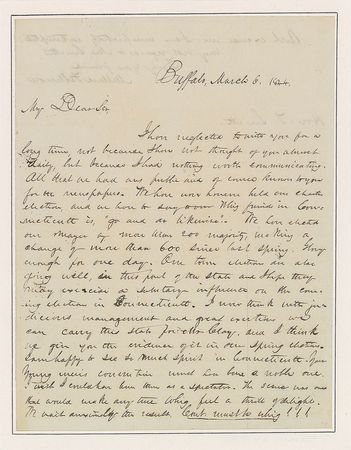 Buffalo, March 6. 1844.
My Dear Sir
I have neglected to write you for a
long time not because I have not thought of you almost
daily, but because I had nothing worth communicating.
All that we had was public and of course known to you
for our newspapers. We have now however held our charter
election, and we have to say to our Whig friends in Con-
necticutt is, "go and do likewise". We have elected
our mayor by more than 200 majority, making a
change of more than 600 since last spring. Glory
enough for one day. Our town elections are also
going well, in this part of the state and I hope they
may exercise a salutary influence on the com-
ing election in Connecticutt. I now think with ju-
dicious management and great exertions we
can carry this State for Mr Clay, and I think
we give you the evidence of it in our Spring elections.
I am happy to see so much spirit in Connecticutt. Your
Young men's convention must have been a noble one.
I wish I could have been there as a spectator. The scene was one
that would make any true Whig feel a thrill of delight.
We wait anxiously the result. Cont. must be whig!!!